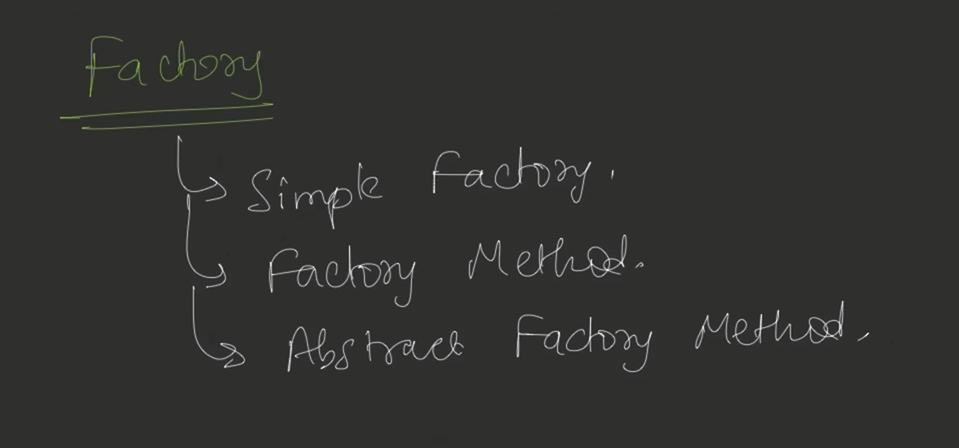 Factory
Simple Factory.
Factory Method.
Abstract Factory Method.